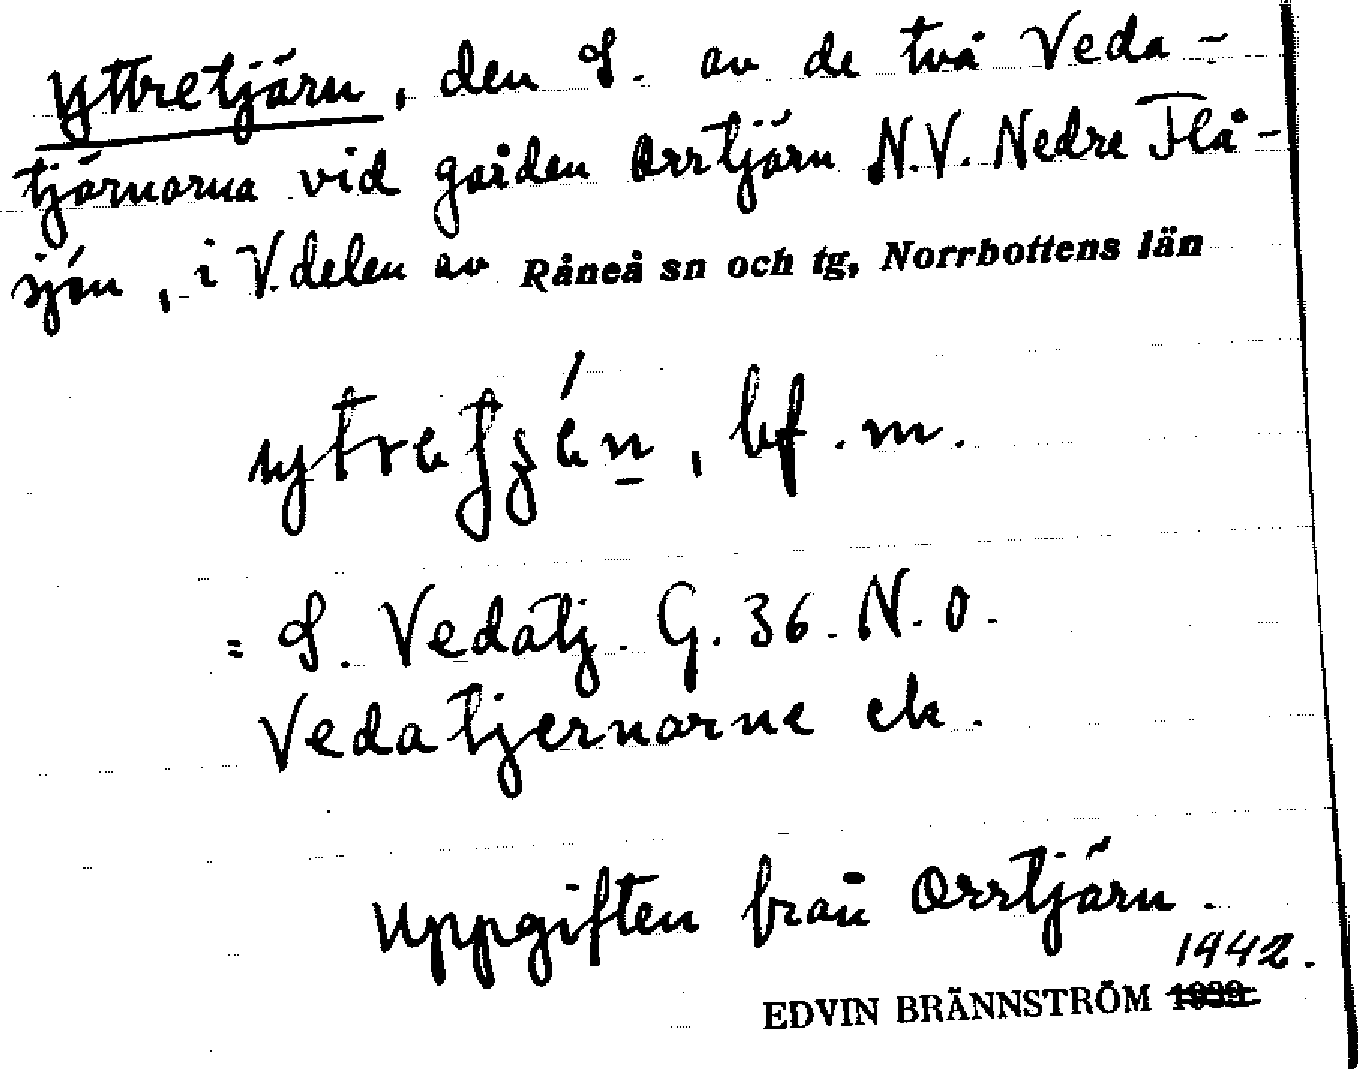 Yttretjärn, den S. av de två Veda-
tjärnarna vid gården Orrtjärn N.V. Nedre Flå-
sjön, i V. delen av Råneå sn och tg, Norrbottens län
bf. m.
= S. Vedatj. G. 36. N. O.
Vedatjernarne ek.
Uppgiften från Orrtjärn.
1942.
EDVIN BRÄNNSTRÖM 1939